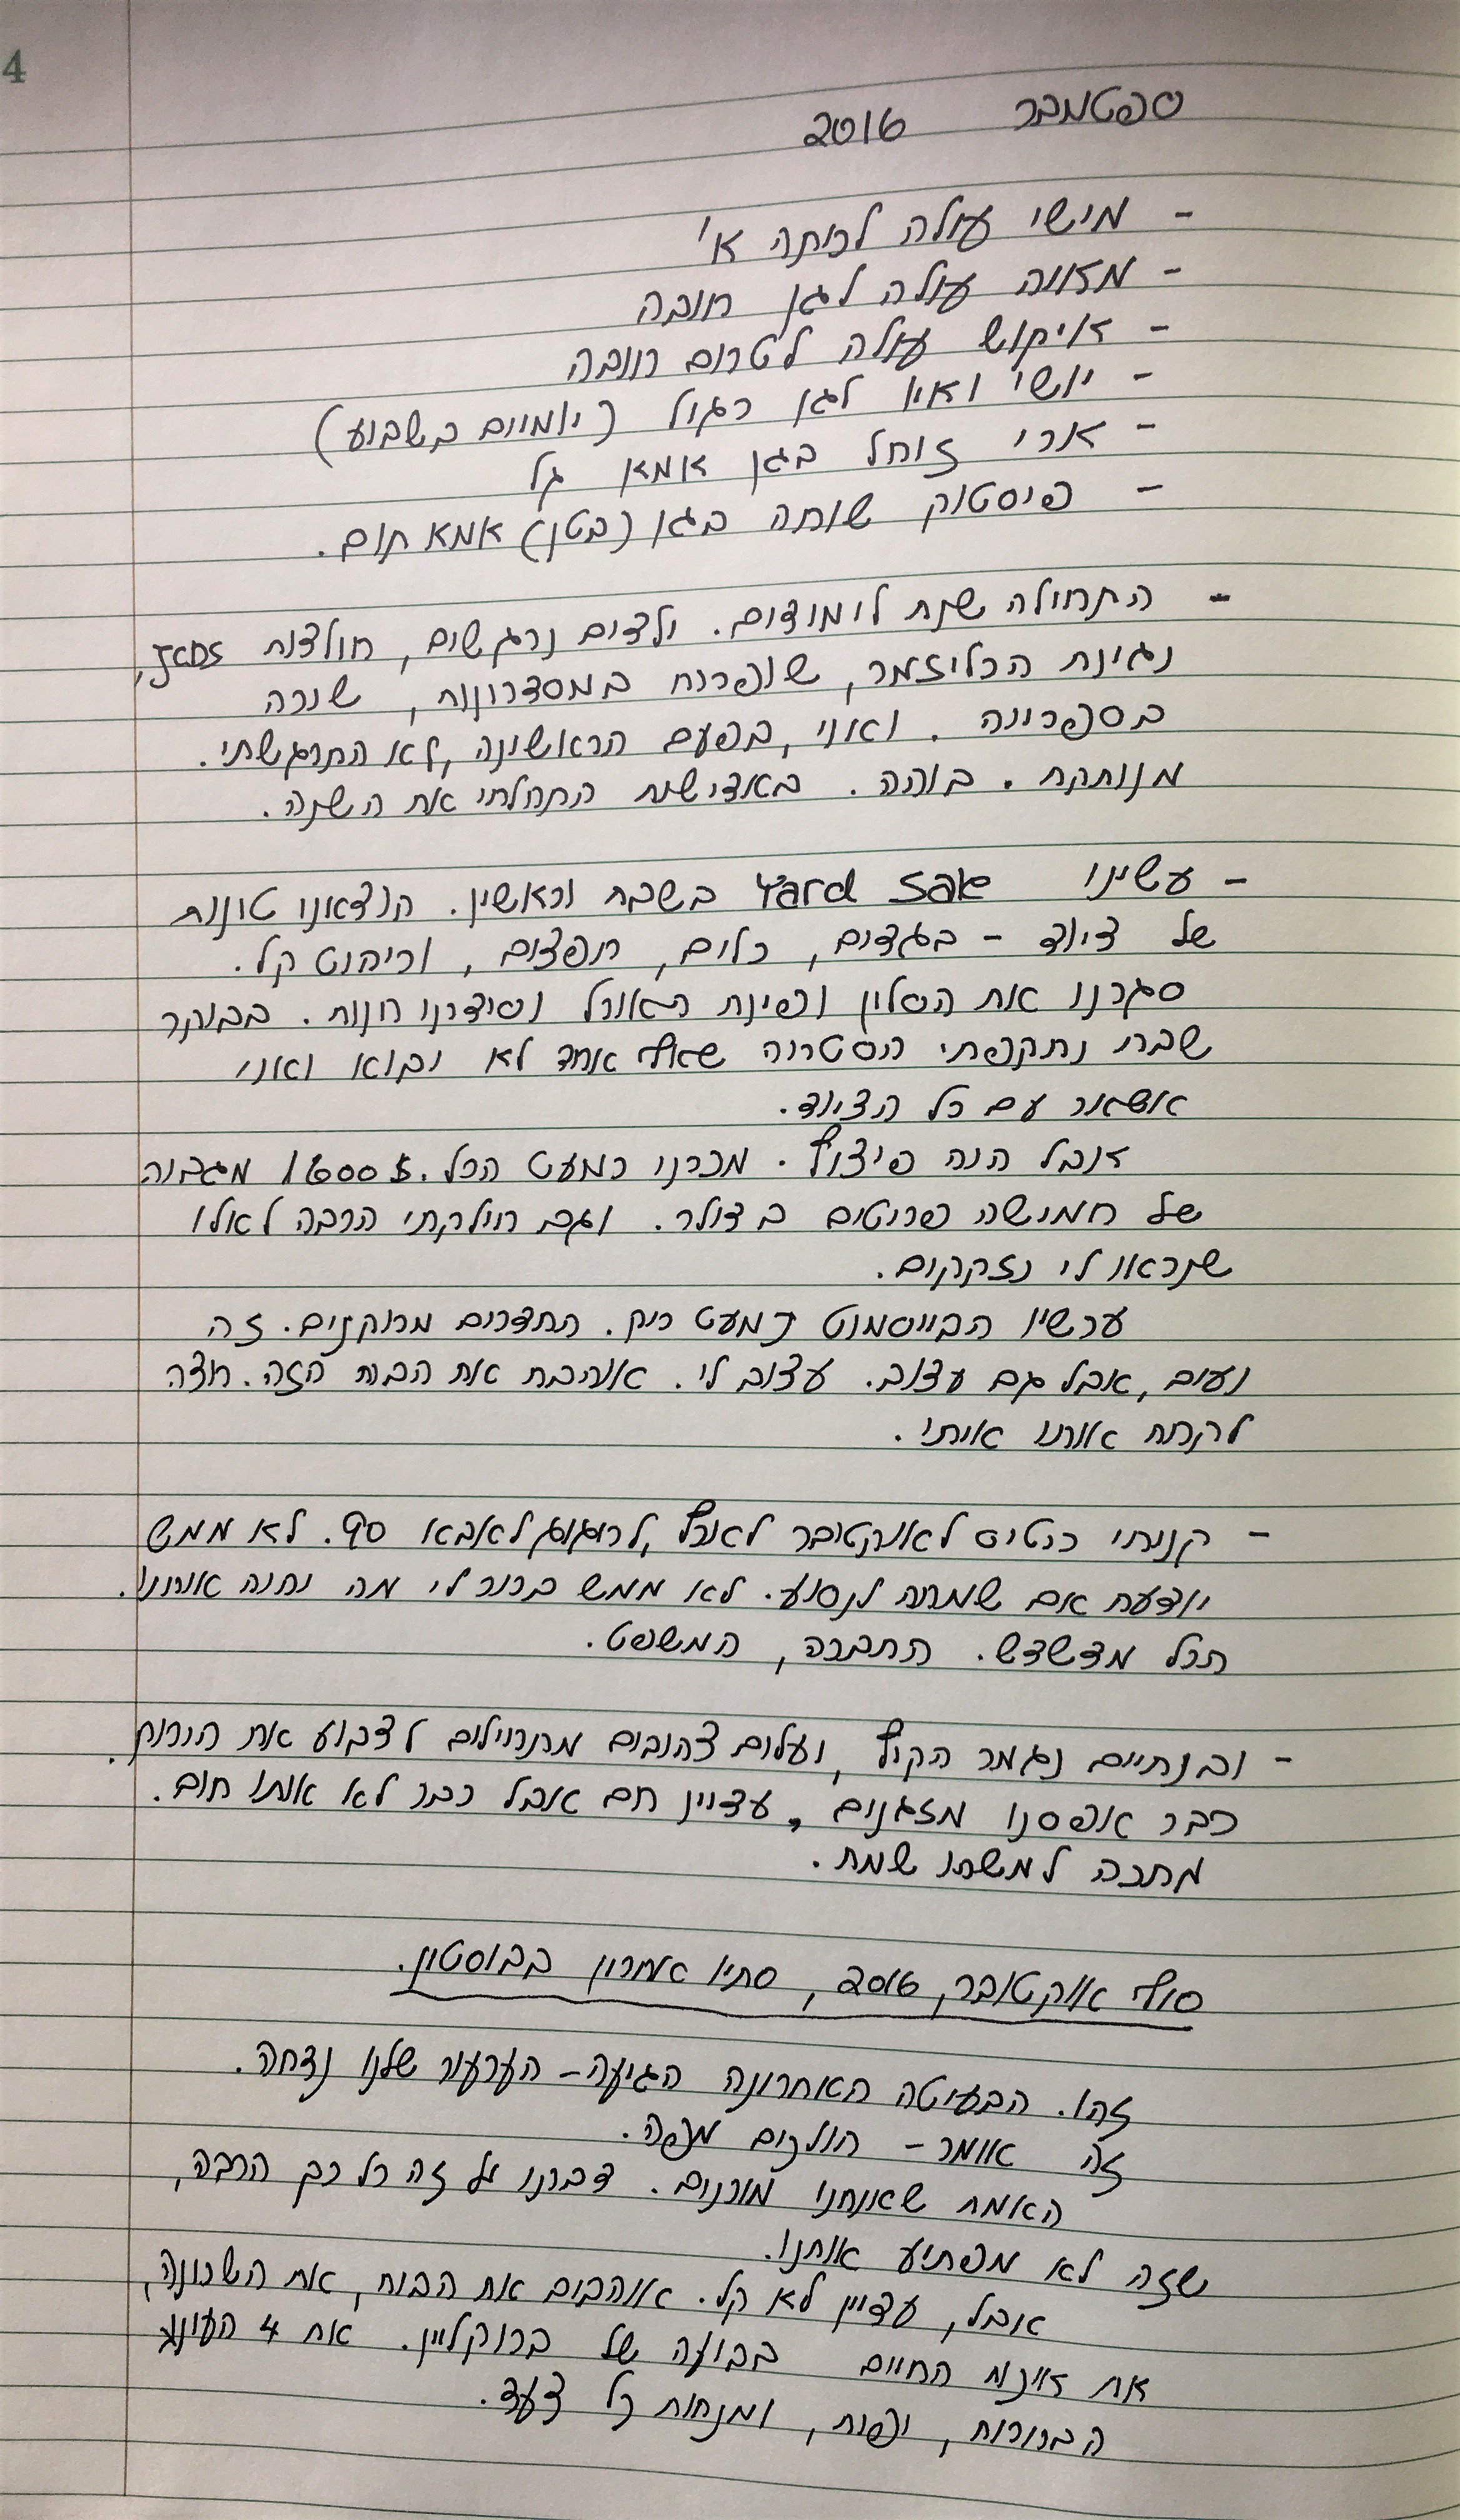 4
ספטמבר 2016
- מישי עולה לכיתה א'
- מאיה עולה לגן חובה
- איקוש עולה לטרום חובה
- יושי ואיו לגן רגיל (יומיים בשבוע)
- ארי זוחל בגן אמא גל
- פיסטוק שוחה בגן (בטן) אמא תום.
- התחילה שנת לימודים. ילדים נרגשים, חולצות JCDS,
נגינת הכליזמר, שופרות במסדרונות, שירה
בספרייה. ואני, בפעם הראשונה, לא התרגשתי.
מנותקת. בוהה. באדישות התחלתי את השנה.
- עשינו Yard Sale בשבת וראשון. הוצאנו טונות
של ציוד - בגדים, כלים, חפצים, וריהוט קל.
סגרנו את הסלון ופינת האוכל וסידרנו חנות. בבוקר
שבת נתקפתי היסטריה שאף אחד לא יבוא ואני
אשאר עם כל הציוד.
אבל היה פיצוץ. מכרנו כמעט הכל. 1600$ מגבייה
של חמישה פריטים בדולר. וגם חילקתי הרבה לאלו
שנראו לי נזקקים.
עכשיו הבייסמנט כמעט ריק. החדרים מרוקנים. זה
נעים, אבל גם עצוב. עצוב לי. אוהבת את הבית הזה. רוצה
לקחת אותו איתי.
- קניתי כרטיס לאוקטובר לארץ, לחגוג לאבא 90. לא ממש
יודעת אם שמחה לנסוע. לא ממש ברור לי מה יהיה איתנו.
הכל מדשדש. החברה, המשפט.
- ובנתיים נגמר הקיץ, ועלים צהובים מתחילים לצבוע את הירוק.
כבר אפסנו מזגנים, עדיין חם אבל כבר לא אותו חום.
מחכה למשהו שמח.
סוף אוקטובר, 2016, סתיו אחרון בבוסטון.
זהו. הבעיטה האחרונה הגיעה - הערעור שלנו נדחה.
זה אומר - הולכים מפה.
האמת שאנחנו מוכנים. דברנו על זה כל כך הרבה,
שזה לא מפתיע אותנו.
אבל, עדיין לא קל. אוהבים את הבית, את השכונה,
את איכות החיים בבועה של ברוקליין. את 4 העונות
הברורות, יפות, ומנחות כל צעד.